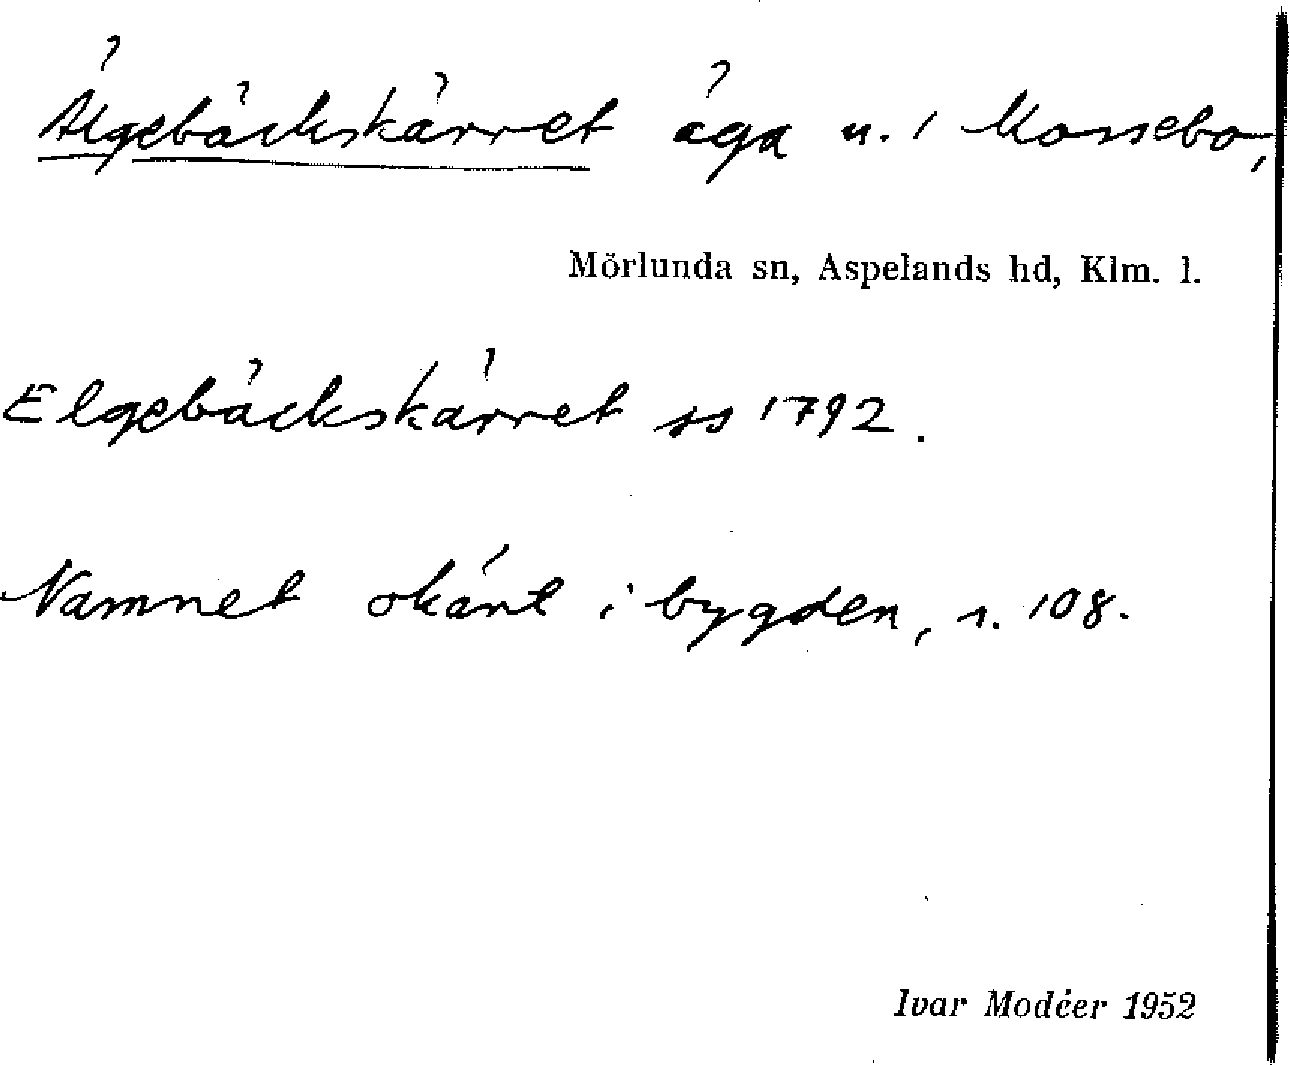 Älgebäckskärret äga u. i Mossebo,
Mörlunda sn, Aspelands hd, Klm. l.
Elgebäckskärret ss 1792.
Namnet okänt i bygden, s. 108.
Ivar Modéer 1952